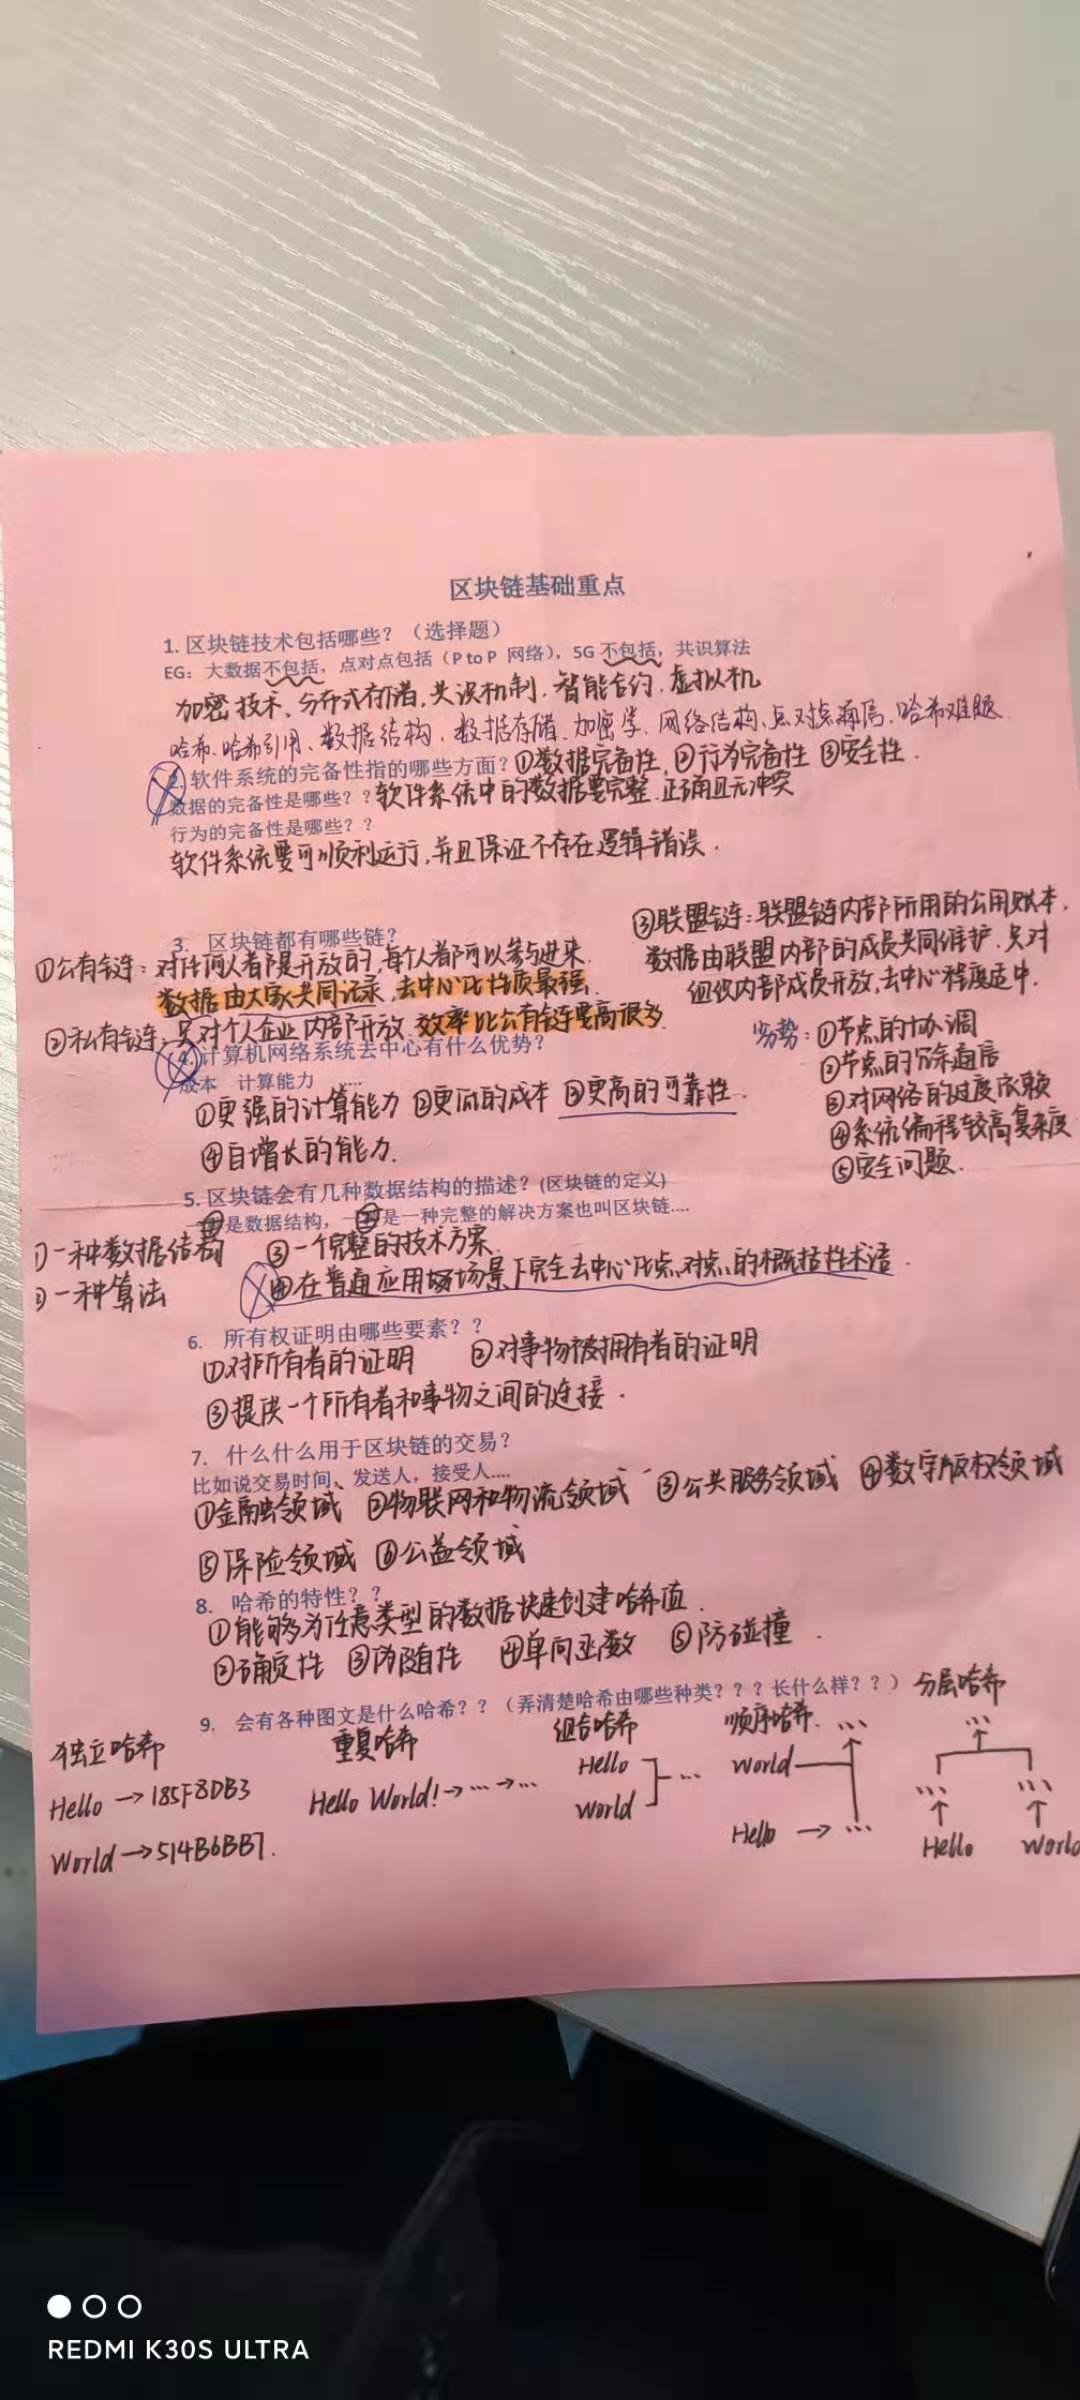 区块链基础重点
1. 区块链技术包括哪些？（选择题）
EG：大数据不包括，点对点包括（P to P 网络），5G 不包括，共识算法
加密技术、分布式存储，共识机制、智能合约、虚拟机
哈希、哈希引用、数据结构、数据存储、加密学、网络结构、点对点通信、哈希难题
2. 软件系统的完备性指的哪些方面？①数据完备性，②行为完备性 ③安全性．
数据的完备性是哪些？？软件系统中的数据要完整、正确且无冲突
行为的完备性是哪些？？
软件系统要可顺利运行，并且保证不存在逻辑错误．
3. 区块链都有哪些链？
①公有链：对任何人都是开放的，每个人都可以参与进来．
数据由大家共同记录，去中心化性质最强．
②私有链：只对个人企业内部开放．效率比公有链要高很多．
③联盟链：联盟链内部所用的公用账本，
数据由联盟内部的成员共同维护．只对
组织内部成员开放，去中心程度适中．
4. 计算机网络系统去中心有什么优势？
成本 计算能力 ……
①更强的计算能力 ②更低的成本 ③更高的可靠性．
④自增长的能力．
劣势：①节点的协调
②节点的冗余通信
③对网络的过度依赖
④系统编程较高复杂度
⑤安全问题．
5. 区块链会有几种数据结构的描述？(区块链的定义)
是数据结构，是一种完整的解决方案也叫区块链....
①一种数据结构 ③一个完整的技术方案
②一种算法 ④在普通应用场景下完全去中心化点对点的概括性术语．
6. 所有权证明由哪些要素？？
①对所有者的证明 ②对事物被拥有者的证明
③提供一个所有者和事物之间的连接．
7. 什么什么用于区块链的交易？
比如说交易时间、发送人，接受人....
①金融领域 ②物联网和物流领域 ③公共服务领域 ④数字版权领域
⑤保险领域 ⑥公益领域
8. 哈希的特性？？
①能够为任意类型的数据快速创建哈希值．
②确定性 ③伪随性 ④单向函数 ⑤防碰撞．
9. 会有各种图文是什么哈希？？（弄清楚哈希由哪些种类？？？长什么样？？）
独立哈希
Hello → 185F8DB3
World → 514B6BB7.
重复哈希
Hello World! → … → …
组合哈希
Hello
World
…
顺序哈希．
…
World
Hello → …
分层哈希
…
… …
Hello World
REDMI K30S ULTRA